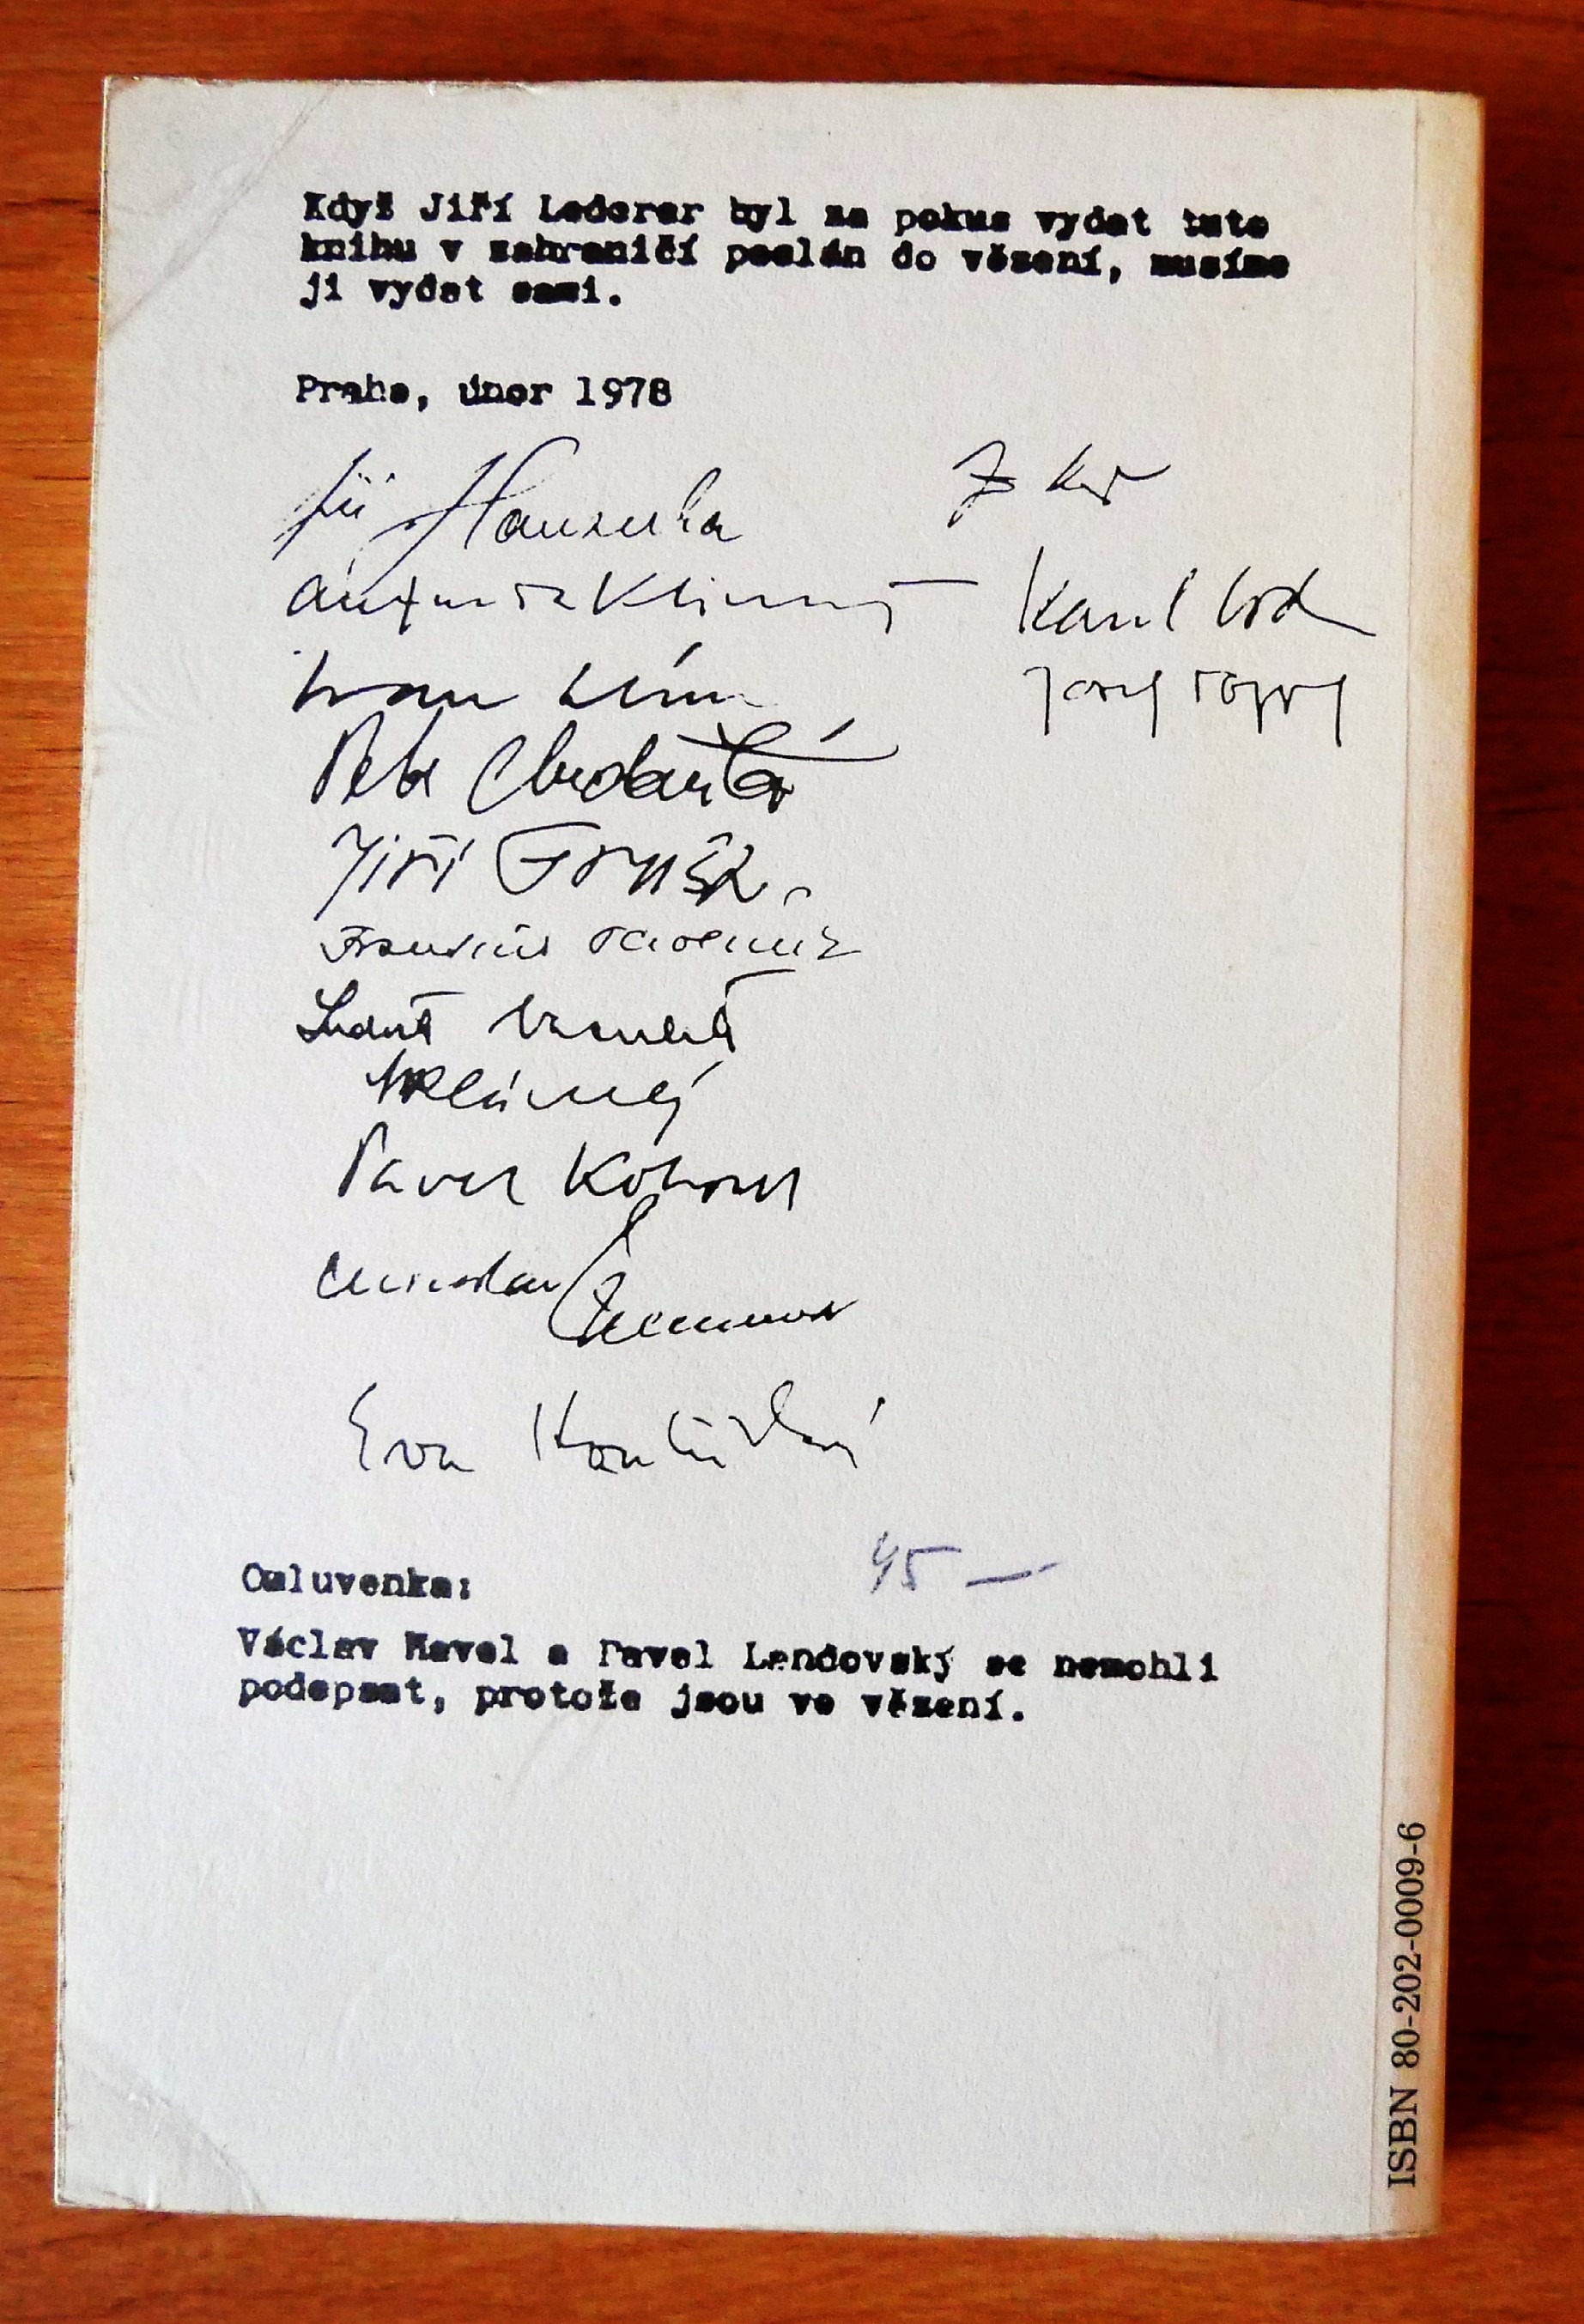 Když Jiří Lederer byl za pokus vydat tuto
knihu v zahraničí poslán do vězení, musíme
ji vydat sami.
Praha, únor 1978
Jiří Hanzelka
Ivan Klíma
Petr Chudožilov
Jiří Gruša
Ludvík Vaculík
Pavel Kohout
Eva Kantůrková
Karel
Josef Topol
45 —
Omluvenka:
Václav Havel a Pavel Landovský se nemohli
podepsat, protože jsou ve vězení.
ISBN 80-202-0009-6